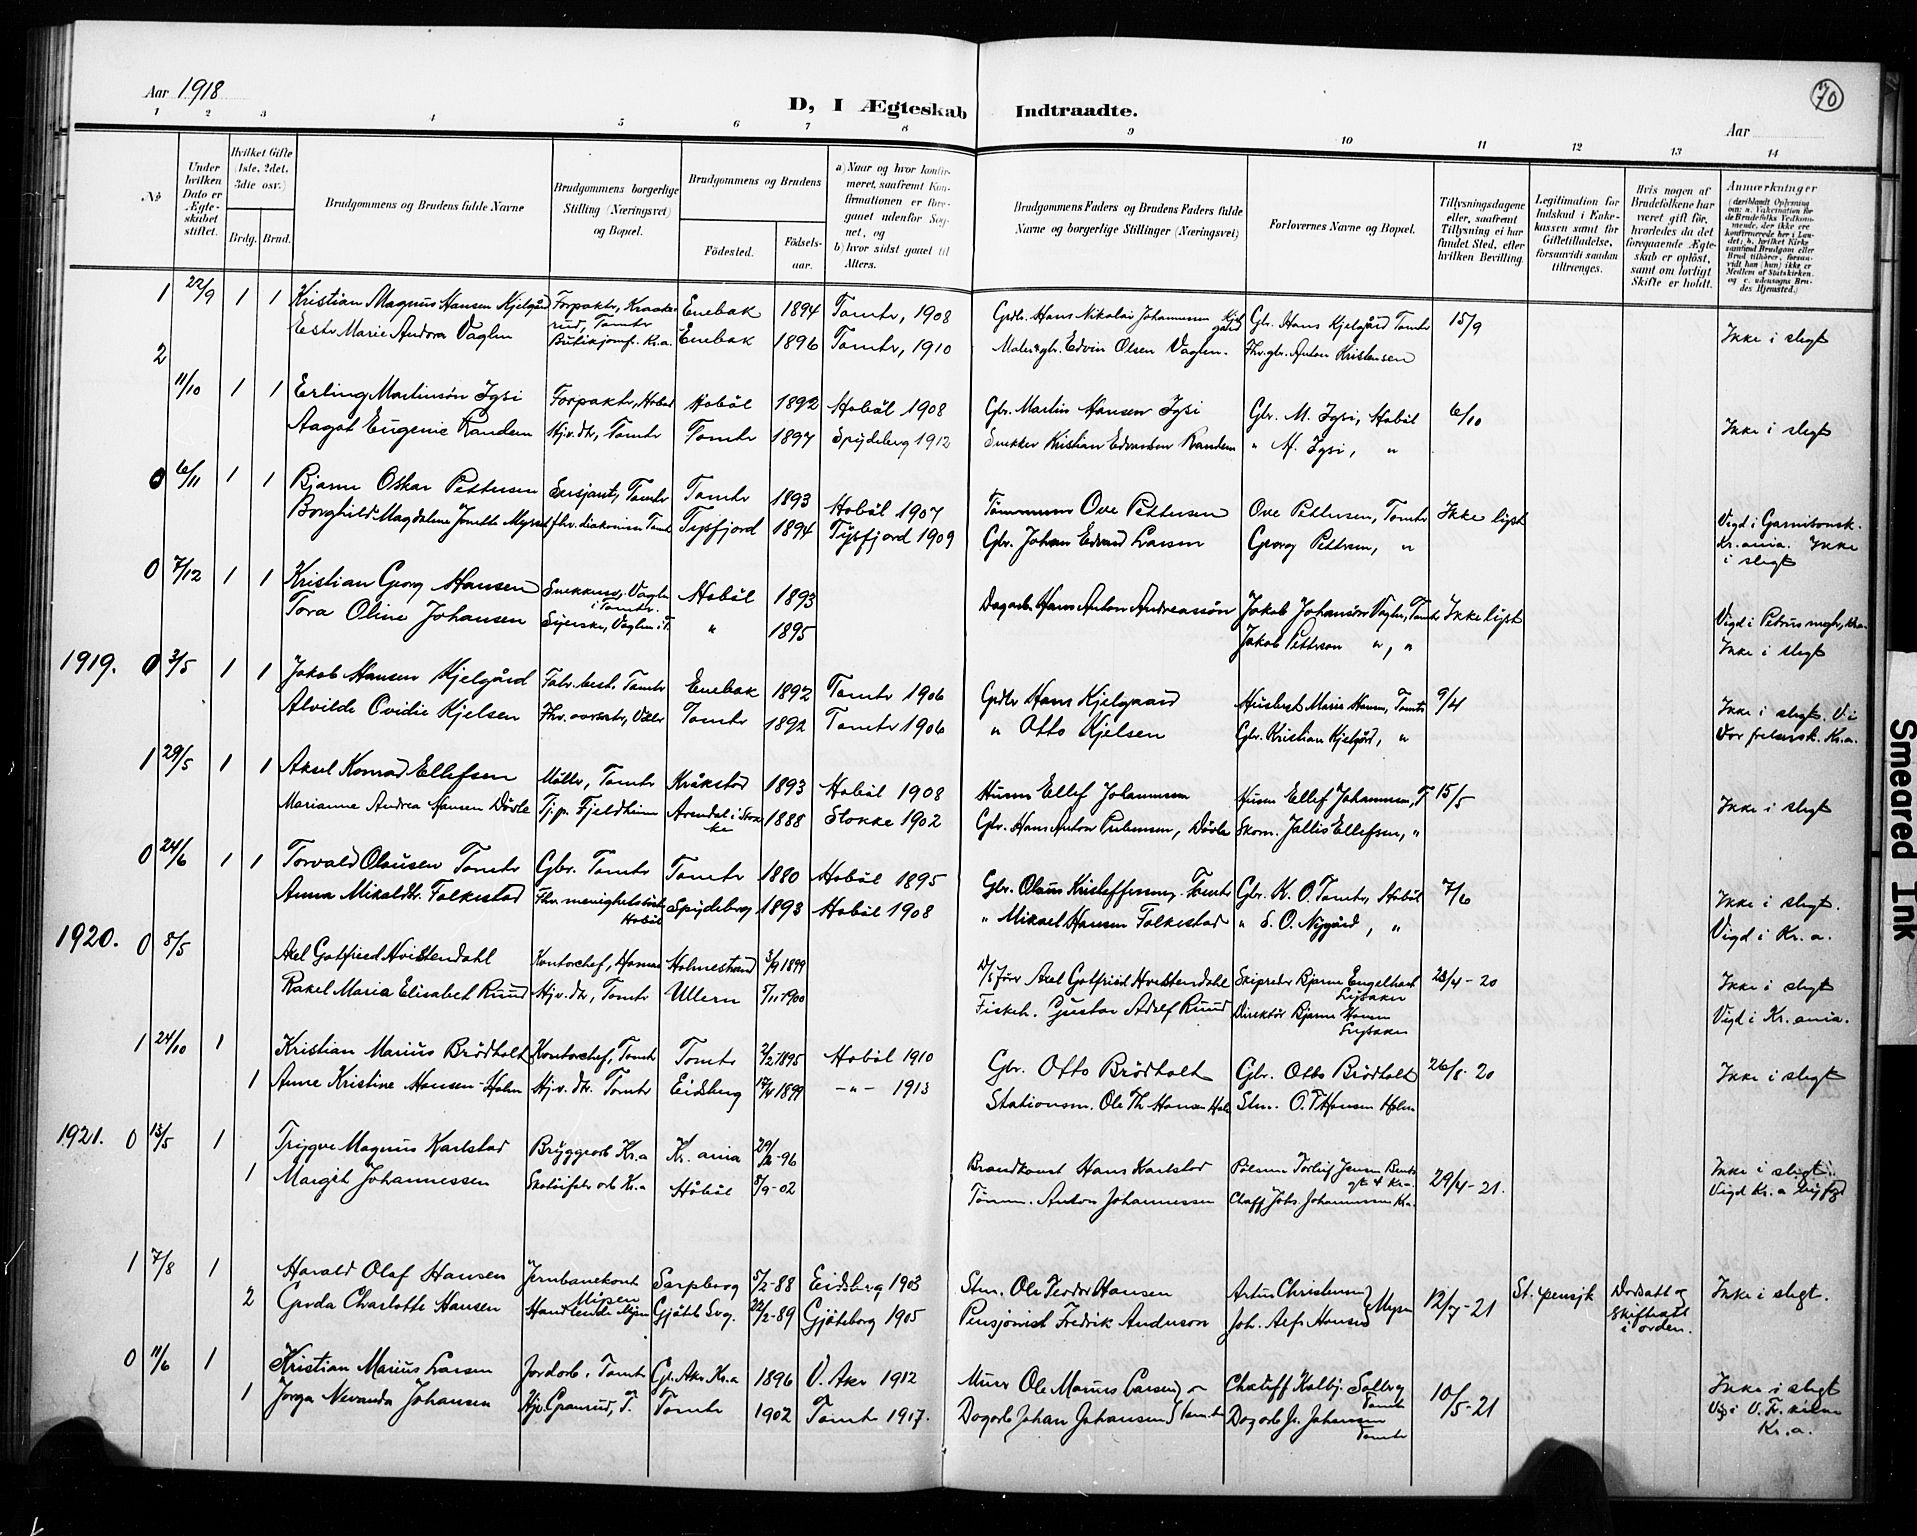 Aar 1918
D, I Ægteskab Indtraadte.
70
Aar
1 2 3 4 5 6 7 8 9 10 11 12 13 14
No
Under hvilken Dato er Ægteskabet stiftet.
Hvilket Gifte (1ste, 2det, 3die osv.)
Brdg. Brud.
Brudgommens og Brudens fulde Navne
Brudgommens borgerlige Stilling (Næringsvei) og Bopæl.
Brudgommens og Brudens
Fødested.
Fødselsaar.
a) Naar og hvor konfirmeret, saafremt Konfirmationen er foregaaet udenfor Sognet, og
b) hvor sidst gaaet til Alters.
Brudgommens Faders og Brudens Faders fulde Navne og borgerlige Stillinger (Næringsvei)
Forlovernes Navne og Bopæl.
Tillysningsdagene eller, saafremt Tillysning ei har fundet Sted, efter hvilken Bevilling.
Legitimation for Indskud i Enkekassen samt for Giftetilladelse, forsaavidt saadan tiltrænges.
Hvis nogen af Brudefolkene har været gift før, hvorledes da det foregaaende Ægteskab er opløst, samt om lovligt Skifte er holdt.
Anmærkninger
1 22/9 1 1 Kristian Magnus Hansen Kjelgård Forpakter, Kraakerud, Tomter Enebak 1894 Tomter, 1908 Grdbr. Hans Nikolai Johannessen Kjelgård Gbr. Hans Kjelgård Tomter 15/9 Ikke i slegt
2 Ester Marie Andora Vaglen Butikjomf. Kr.a Enebak 1896 Tomter, 1910 Edvin Olsen Vaglen. Fhv. gbr. Anton Kristensen
11/10 1 1 Erling Martinsøn Igsi Forpakter, Hobøl Hobøl 1892 Hobøl 1908 Gbr. Martin Hansen Igsi Gbr. M. Igsi, Hobøl 6/10 Ikke i slegt
Aagot Eugenie Randem Hjv. dtr, Tomter Tomter 1897 Spydeberg 1912 Snekker Kristian Edvardsen Randem " M. Igsi, "
0 6/11 1 1 Bjarne Oskar Pettersen Sersjant, Tomter Tomter 1893 Hobøl 1907 Ove Pettersen Ove Pettersen, Tomter Ikke lyst Vigd i Garnisonsk. Kr.ania. Ikke i slegt
Borghild Magdalene Jonette fhv. diakonisse Tomter Tysfjord 1894 Tysfjord 1909 Gbr. Johan Edvard Larsen Georg Pettersen, "
0 7/12 1 1 Kristian Georg Hansen Snekkersv., Vaglen i Tomter. Hobøl 1893 Dagarb. Hans Anton Andreassøn Jakob Johansøn Vaglen, Tomter Ikke lyst Vigd i Petrus megh, Kr.a.
Tora Oline Johansen Sijerske, Vaglen i T. " 1895 Jakob Pettersen ", " Ikke i slegt
1919. 0 3/5 1 1 Jakob Hansen Kjelgård Fabr. best. Tomter Enebak 1892 Tomter 1906 Grdbr Hans Kjelgaard Husbest Marie Hansen, Tomter 9/4 Ikke i slegt. V. i
Alvilde Ovidie Kjelsen Fhv. Tomter 1892 Tomter 1906 " Otto Kjelsen Gbr. Kristian Kjelgård, " Vor frelsersk. Kr.a.
1 29/5 1 1 Aksel Konrad Ellefsen Møller, Tomter Kråkstad 1893 Hobøl 1908 Husm Ellef Johannessen Husm Ellef Johannessen, T 15/5
Marianne Andrea Hansen Døvle Tj.p. Fjeldheim Arendal i Stokke 1888 Stokke 1902 Gbr. Hans Anton Døvle Skom. Jallis Ellefsen, " Ikke i slegt
0 24/6 1 1 Torvald Olausen Tomter Gbr. Tomter Tomter 1880 Hobøl 1895 Gbr. Olaus Kristoffersen Tomter Gbr. K. O. Tomter, Hobøl 7/6 Ikke i slegt.
Anna Mikaldtr. Folkestad Fhv. Hobøl Spydeberg 1893 Hobøl 1908 " Mikael Hansen Folkestad " S. O. Nygård, " Vigd i Kr.a.
1920. 0 8/5 Axel Gotfried Hvistendahl Kontorchef, Horten Holmestrand 3/9 1899 Axel Gotfried Hvistendahl Skipsreder Bjarne Engelhart Lysaker 23/4-20 Ikke i slegt
Rakel Maria Elisabet Ruud Hjv. dtr, Tomter Ullern 5/11 1900 Fiskeh. Gustav Adolf Ruud Direktør Bjarne Hansen Lysaker Vigd i Kr.ania.
1 24/10 1 Kristian Marius Brödholt Kontorchef, Tomter Tomter 2/2 1895 Hobøl 1910 Gbr. Otto Brödholt Gbr. Otto Brödholt 26/8-20 Ikke i slegt
1 Anne Kristine Hansen-Holm Hjv. dtr. Tomter Eidsberg 17/4 1899 -"- 1913 Stationsm. Ole Th. Hansen Holm Stm. O. T Hansen Holm
1921. 0 13/5 1 Trygve Magnus Karlstad Bryggearb Kr.a Kr.ania 29/2-96 Hans Karlstad Torleif Jensen Kr.a. 29/4-21. Ikke i slegt.
1 Margit Johannessen Skotøifabr arb Kr.a Hobøl 8/9-02 Tömm. Anton Johannessen Chaff Johs. Johannessen Kr.a. Vigd Kr.a Byfgd
1 7/8 1 Harald Olaf Hansen Jernbanekont Mysen Sarpborg 5/2-88 Eidsberg 1903 Stm. Ole Teodor Hansen Artur Christensen Mysen 12/7-21 St. pensjk Dødsatt og skifteatt i orden. Ikke i slegt.
2 Gerda Charlotte Hansen Handlende Mysen Gjøteb Svg. 22/2-89 Gjøteborg 1905 Pensjonist Fredrik Anderson Joh. Alfr Hansen
0 11/6 1 Kristian Marius Larsen Jordarb. Tomter Gl. Aker Kr.a 1896 V. Aker 1912 Murer Ole Marius Larsen Chauff Kolbj. Solberg Tomter 10/5-21 Ikke i slegt
1 Jorga Nevanda Johansen Hjv. Granrud, T. Tomter 1902 Tomter 1917. Dagarb Johan Johansen Tomter Dagarb Jr. Johansen Tomter Vigd i V. Fr. kirke Kr.a.
Smeared Ink